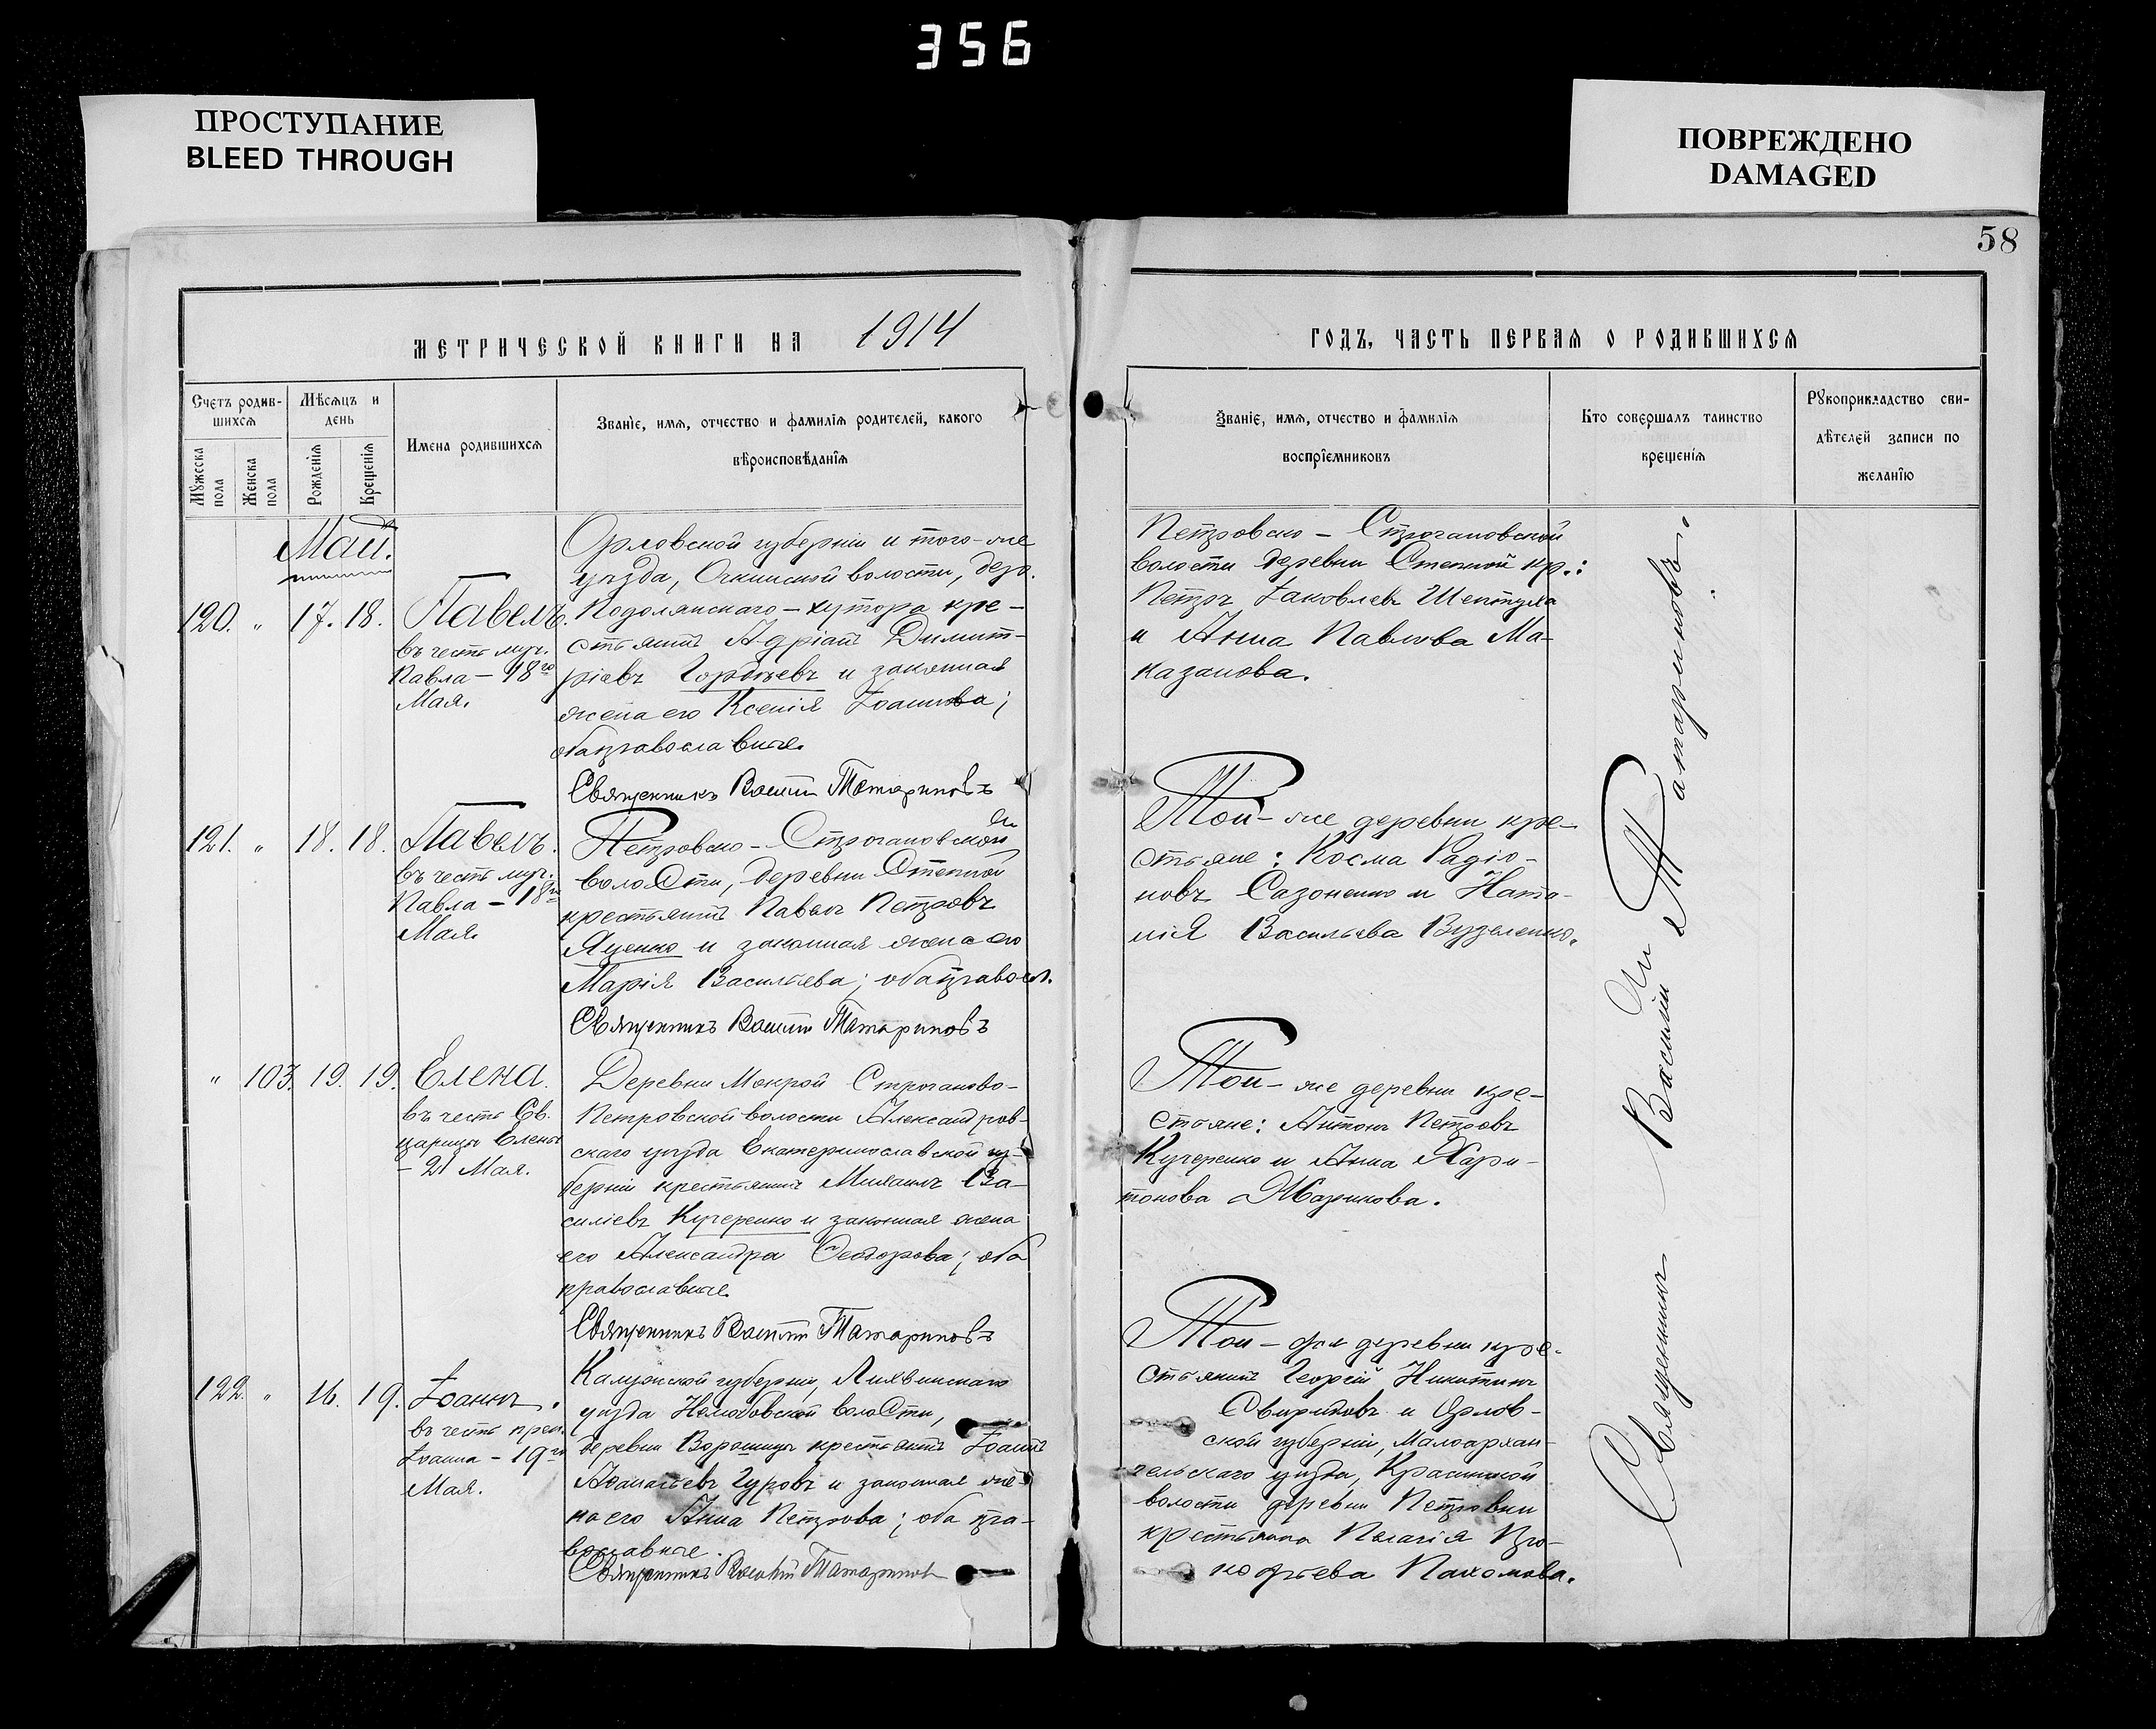 356
ПРОСТУПАНИЕ
BLEED THROUGH
ПОВРЕЖДЕНО
DAMAGED
58
МЕТРИЧЕСКОЙ КНИГИ НА 1914
ГОДЪ, ЧАСТЬ ПЕРВАЯ О РОДИВШИХСЯ
Счетъ родив-
шихся
Мужеска
пола
Женска
пола
Мѣсяцъ и
день
Рожденія
Крещенія
Имена родившихся
Званіе, имя, отчество и фамилія родителей, какого
вѣроисповѣданія
Званіе, имя, отчество и фамилія
воспріемниковъ
Кто совершалъ таинство
крещенія
Рукоприкладство сви-
дѣтелей записи по
желанію
Май.
120. " 17. 18.
Павелъ.
въ честь муч.
Павла – 18го
Мая.
Орловской губерніи и того-же
уѣзда, волости, дер.
Подолянскаго – хутора кре-
стьянинъ Адріанъ Димит-
ріевъ Гордѣевъ и законная
жена его Ксенія Іоаннова;
оба православные.
Священникъ Василій Татариновъ
Петровско – Строгановской
волости деревни Степной кр.:
Петръ Іаковлевъ Шептуха
и Анна Павлова Ма-
казанова.
121. " 18. 18.
Павелъ.
въ честь муч.
Павла – 18го
Мая.
Петровско – Строгановской
волости, деревни Степной
крестьянинъ Павелъ Петровъ
Яценко и законная жена его
Марія Васильева; оба правосл.
Священникъ Василій Татариновъ
Той – же деревни кре-
стьяне: Косма Радіо-
новъ Сазоненко и Ната-
лія Васильева Вуделенко.
" 103. 19. 19.
Елена.
въ честь Св.
царицы Елены
– 21 Мая.
Деревни Мокрой Строганово-
Петровской волости Александров-
скаго уѣзда Екатеринославской гу-
берніи крестьянинъ Михаилъ Ва-
силіевъ Кучеренко и законная жена
его Александра Ѳеодорова; оба
православные.
Священникъ Василій Татариновъ
Той – же деревни кре-
стьяне: Антонъ Петровъ
Кучеренко и Анна Хари-
тонова Жарикова.
122. " 16. 19.
Іоаннъ.
въ честь преп.
Іоанна – 19го
Мая.
Калужской губерніи, Лихвинскаго
уѣзда волости,
деревни крестьянинъ Іоаннъ
Аѳанасьевъ Гуровъ и законная же-
на его Анна Петрова; оба пра-
вославные.
Священникъ Василій Татариновъ
Той – же деревни кре-
стьянинъ Георгій Никитинъ
Свиридовъ и Орлов-
ской губерніи, Малоархан-
гельскаго уѣзда,
волости деревни Петровки
крестьянка Пелагія Про-
кофьева Пахомова.
Священникъ Василій Татариновъ.